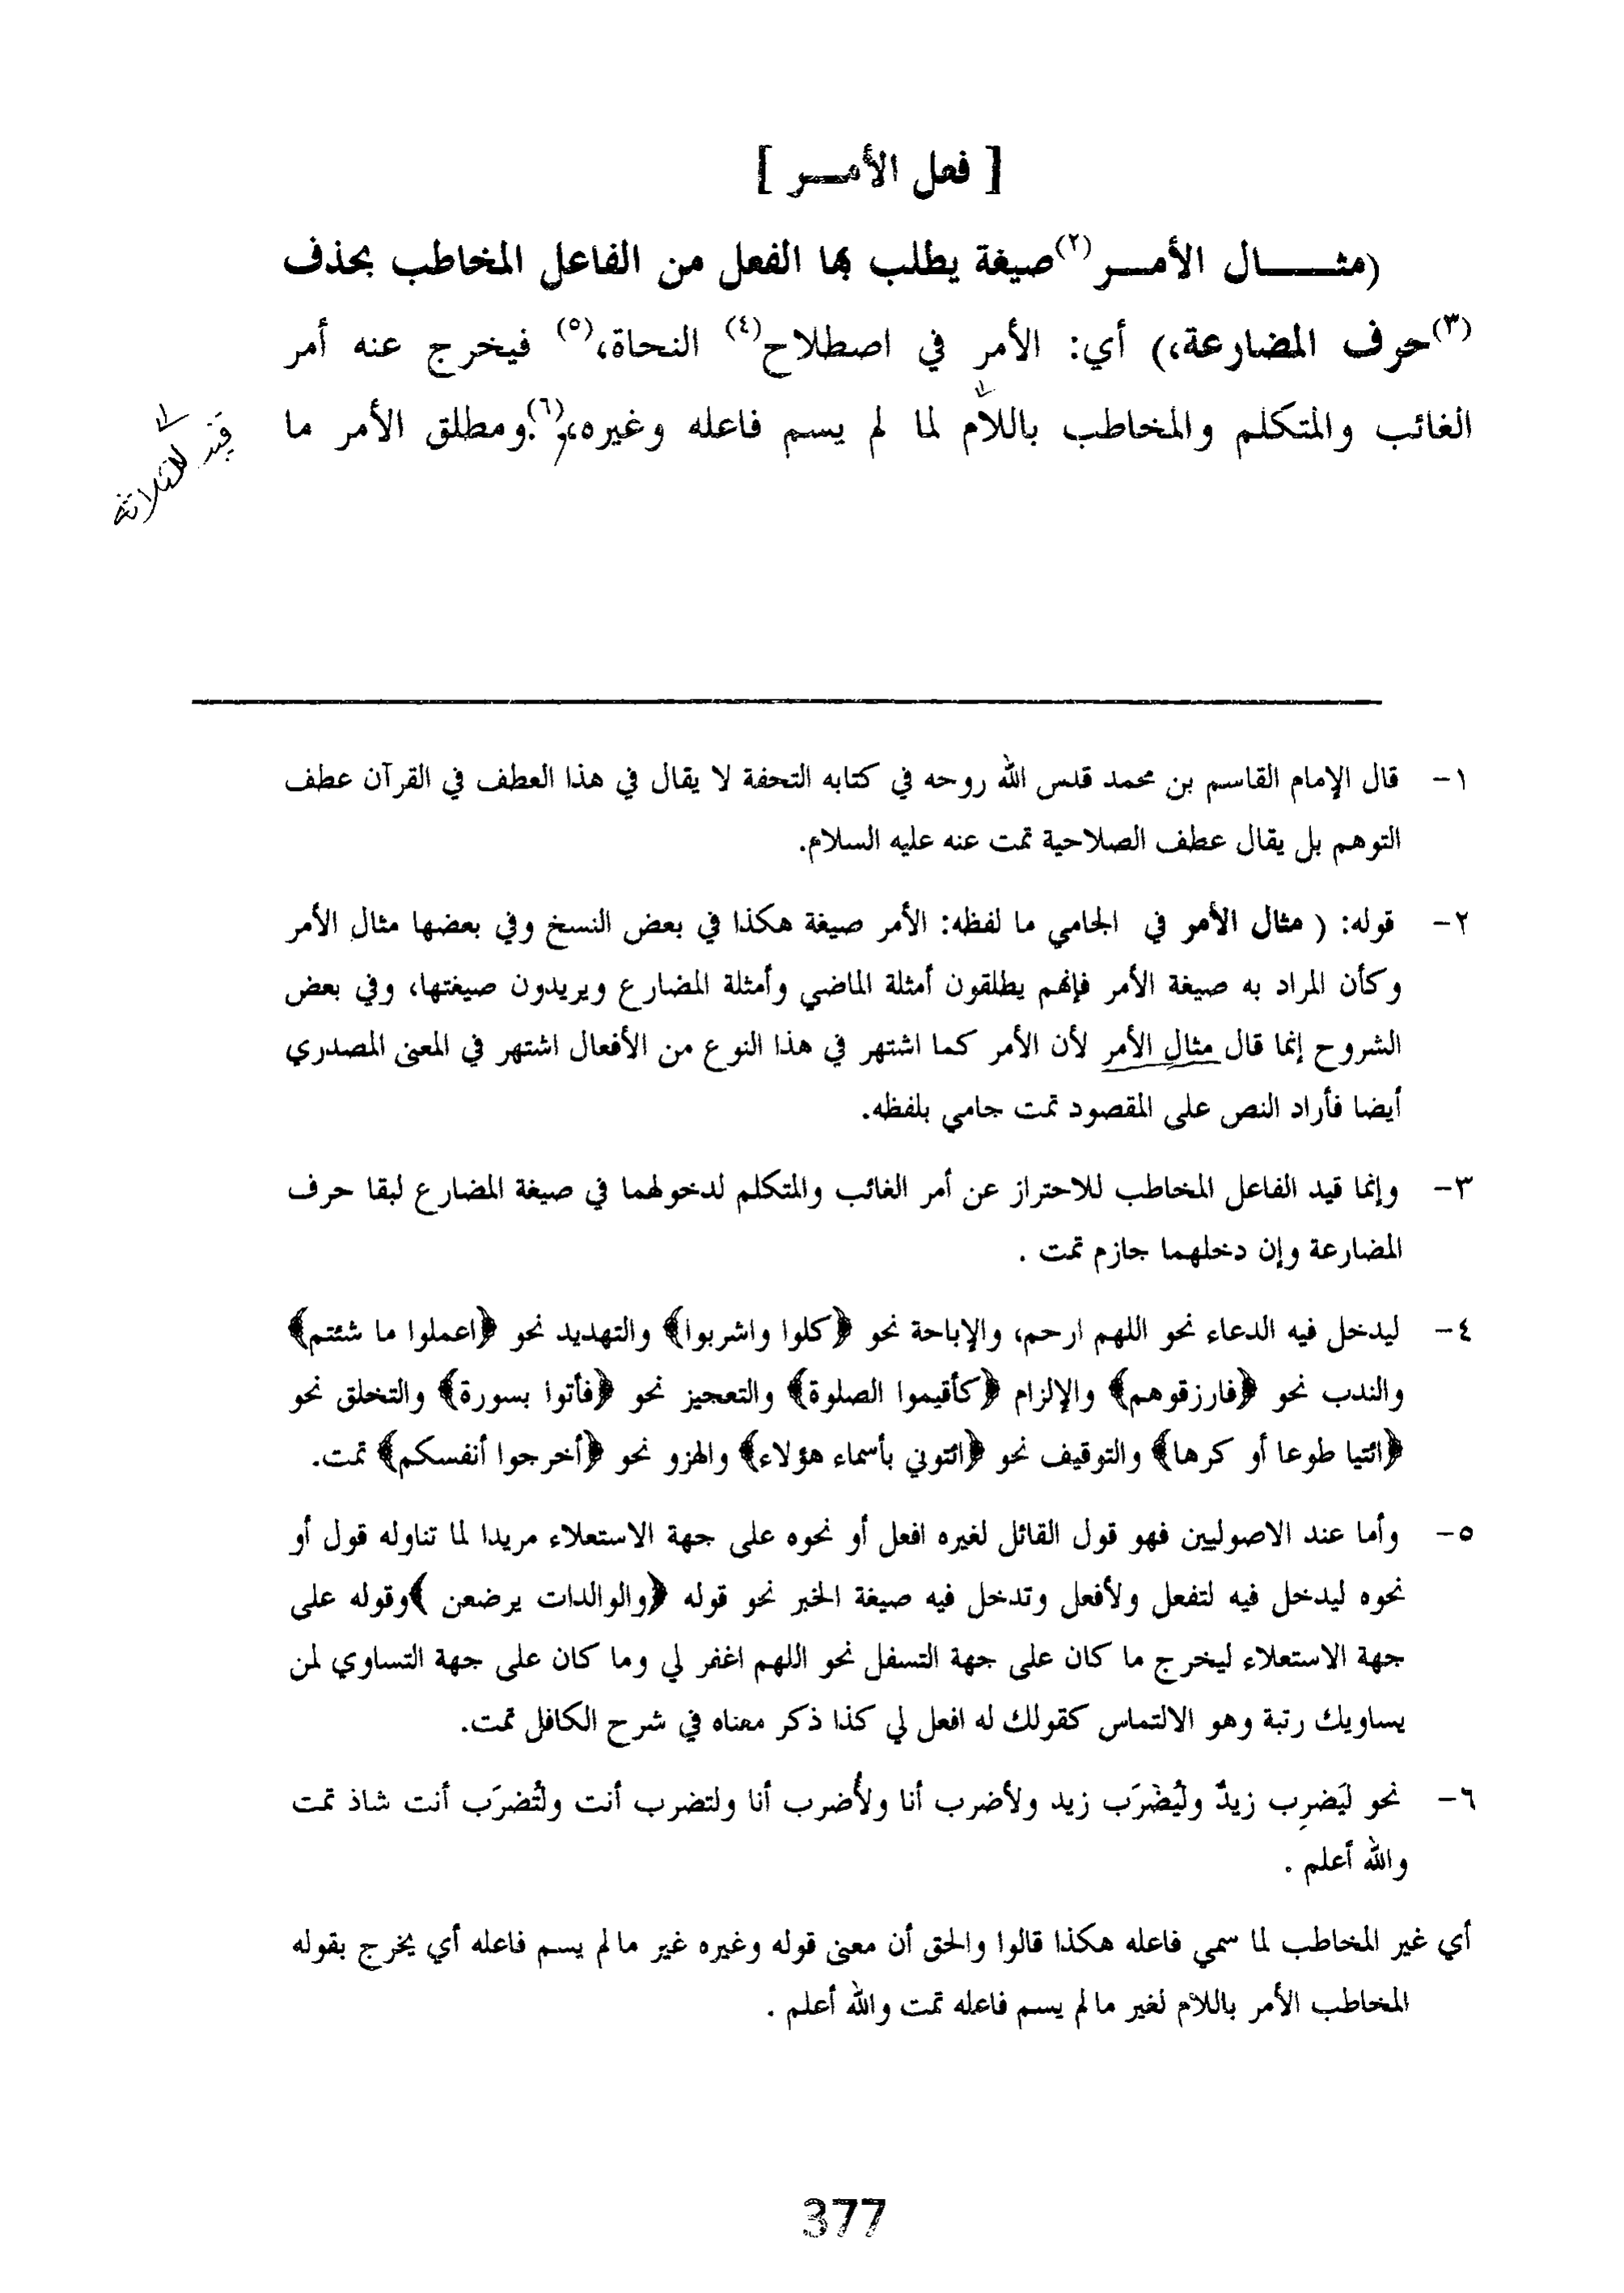 [ فعل الأمــر ]
(مثــــال الأمــر(٢)صيغة يطلب بها الفعل من الفاعل المخاطب بحذف
(٣)حرف المضارعة،) أي: الأمر في اصطلاح(٤) النحاة،(٥) فيخرج عنه أمر
الغائب والمتكلم والمخاطب باللام لما لم يسم فاعله وغيره،(٦).ومطلق الأمر ما
قيد للثلاثة
١- قال الإمام القاسم بن محمد قدس الله روحه في كتابه التحفة لا يقال في هذا العطف في القرآن عطف
التوهم بل يقال عطف الصلاحية تمت عنه عليه السلام.
٢- قوله: ( مثال الأمر في الجامي ما لفظه: الأمر صيغة هكذا في بعض النسخ وفي بعضها مثال الأمر
وكأن المراد به صيغة الأمر فإنهم يطلقون أمثلة الماضي وأمثلة المضارع ويريدون صيغتها، وفي بعض
الشروح إنما قال مثال الأمر لأن الأمر كما اشتهر في هذا النوع من الأفعال اشتهر في المعنى المصدري
أيضا فأراد النص على المقصود تمت جامي بلفظه.
٣- وإنما قيد الفاعل المخاطب للاحتراز عن أمر الغائب والمتكلم لدخولهما في صيغة المضارع لبقا حرف
المضارعة وإن دخلهما جازم تمت .
٤- ليدخل فيه الدعاء نحو اللهم ارحم، والإباحة نحو ﴿كلوا واشربوا﴾ والتهديد نحو ﴿اعملوا ما شئتم﴾
والندب نحو ﴿فارزقوهم﴾ والإلزام ﴿كأقيموا الصلوة﴾ والتعجيز نحو ﴿فأتوا بسورة﴾ والتخلق نحو
﴿ائتيا طوعا أو كرها﴾ والتوقيف نحو ﴿ائتوني بأسماء هؤلاء﴾ والهزو نحو ﴿أخرجوا أنفسكم﴾ تمت.
٥- وأما عند الاصوليين فهو قول القائل لغيره افعل أو نحوه على جهة الاستعلاء مريدا لما تناوله قول أو
نحوه ليدخل فيه لتفعل ولأفعل وتدخل فيه صيغة الخبر نحو قوله ﴿والوالدات يرضعن ﴾وقوله على
جهة الاستعلاء ليخرج ما كان على جهة التسفل نحو اللهم اغفر لي وما كان على جهة التساوي لمن
يساويك رتبة وهو الالتماس كقولك له افعل لي كذا ذكر معناه في شرح الكافل تمت.
٦- نحو لَيَضرِب زيدٌ ولْيُضْرَب زيد ولأضرب أنا ولأُضرب أنا ولتضرب أنت ولتُضرَب أنت شاذ تمت
والله أعلم .
أي غير المخاطب لما سمي فاعله هكذا قالوا والحق أن معنى قوله وغيره غير مالم يسم فاعله أي يخرج بقوله
المخاطب الأمر باللام لغير مالم يسم فاعله تمت والله أعلم .
377